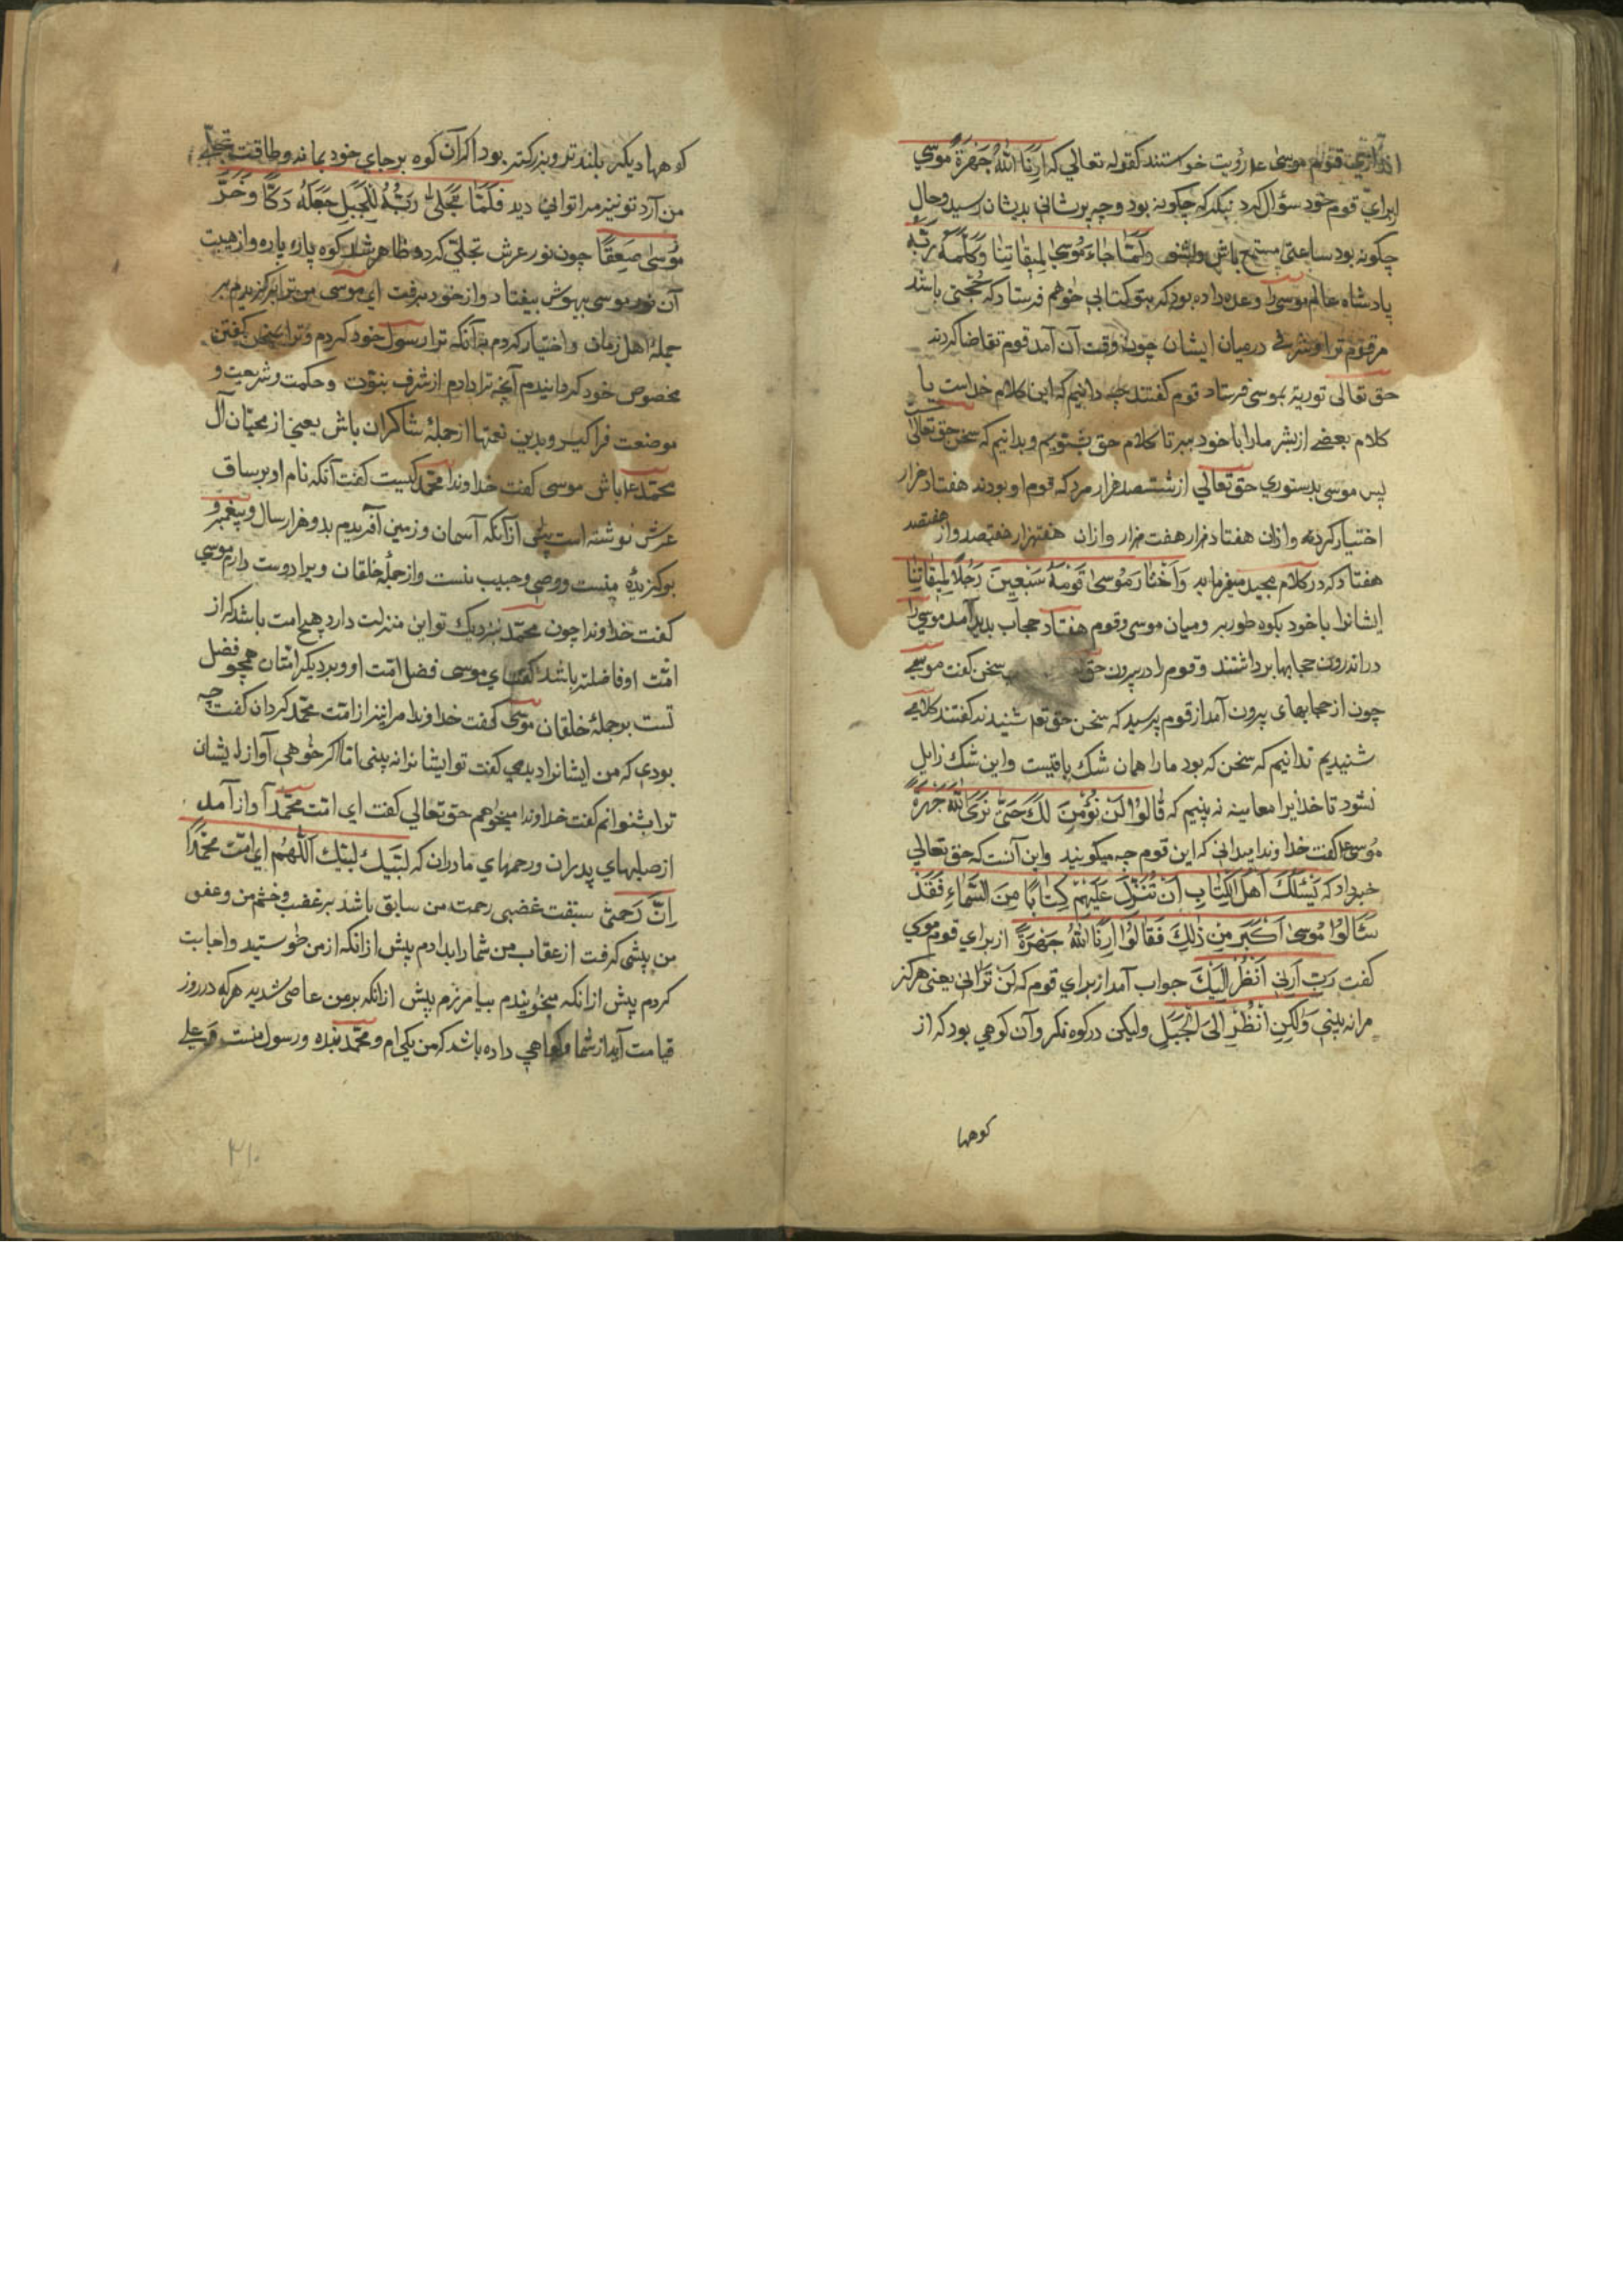 قوم موسی عل رؤیت خواستند کقوله تعالی که ارنا الله جهرة موسی
ازبرای قوم خود سؤال کرد بنکر که چکونه بود و چه پریشانی بدیشان رسید و حال
چکونه بود ساعتی مستمع باش و بشنو وَلَمَّا جَاءَ مُوسیٰ لِمِیقَاتِنَا وَکَلَّمَهُ رَبُّهُ
پادشاه عالم موسی را وعده داده بود که بتو کتابی خواهم فرستاد که حجتی باشد
مر قوم ترا و شرفی درمیان ایشان چون وقت آن آمد قوم تقاضا کردند
حق تعالی توریة بموسی فرستاد قوم کفتند چه دانیم که این کلام خداست یا
کلام بعضی از بشر مارا با خود ببر تا کلام حق بشنویم و بدانیم که سخن حق تعالی است
پس موسی بدستوری حق تعالی از ششصد هزار مرد که قوم او بودند هفتاد هزار
اختیار کرد و ازان هفتاد هزار هفت هزار و ازان هفتهزار هفتصد و از هفتصد
هفتاد که در کلام مجید میفرماید وَاخْتَارَ مُوسیٰ قَوْمَهُ سَبْعِینَ رَجُلًا لِمِیقَاتِنَا
ایشانرا با خود بکوه طور برد و میان موسی و قوم هفتاد حجاب بدید آمد موسی را
در اندرون حجابها برداشتند و قوم را در بیرون حق سخن کفت موسی
چون از حجابهای بیرون آمد از قوم پرسید که سخن حق تعا شنیدند کفتند کلامی
شنیدیم ندانیم که سخن که بود مارا همان شک باقیست و این شک زایل
نشود تا خدایرا معاینه نه بینیم که قَالُوا لَنْ نُؤْمِنَ لَکَ حَتَّی نَرَی اللهَ جَهْرَةً
موسی عل کفت خداوندا میدانی که این قوم چه میکویند و این آنست که حق تعالی
خبر داد که یَسْئَلُکَ اَهْلُ الْکِتَابِ اَنْ تُنَزِّلَ عَلَیْهِمْ کِتَابًا مِنَ السَّمَاءِ فَقَدْ
سَاَلُوا مُوسیٰ اَکْبَرَ مِنْ ذٰلِکَ فَقَالُوا اَرِنَا اللهَ جَهْرَةً از برای قوم موسی
کفت رَبِّ اَرِنِی اَنْظُرْ اِلَیْکَ جواب آمد از برای قوم که لَنْ تَرَانِی یعنی هرکز
مرا نه بینی وَلٰکِنِ انْظُرْ اِلَی الْجَبَلِ ولیکن در کوه نکر و آن کوهی بود که از
کوهها
کوهها دیکر بلند تر و بزرکتر بود اکر آن کوه بر جای خود بماند و طاقت تجلی
من آرد تو نیز مرا توانی دید فَلَمَّا تَجَلّیٰ رَبُّهُ لِلْجَبَلِ جَعَلَهُ دَکًّا وَخَرَّ
مُوسیٰ صَعِقًا چون نور عرش تجلی کرد و ظاهر شد کوه پاره پاره و از هیبت
آن نور موسی بیهوش بیفتاد و از خود برفت ای موسی من ترا برکزیدم بر
جملۀ اهل زمان و اختیار کردم بدانکه ترا رسول خود کردم و ترا بسخن کفتن
مخصوص خود کردانیدم آنچه ترا دادم از شرف نبوّت و حکمت و شریعت و
موضعت فراکیر و بدین نعتها از جملۀ شاکران باش یعنی از محبّان آل
محمّد عل باش موسی کفت خداوندا محمّد کیست کفت آنکه نام او بر ساق
عرش نوشته است پیش ازانکه آسمان و زمین آفریدم بدو هزار سال و پیغمبر و
برکزیدۀ منست و وصی و حبیب منست و از جملۀ خلقان ویرا دوست دارم موسی
کفت خداوندا چون محمّد بنزدیک تو این منزلت دارد هیچ امت باشد که از
امّت او فاضلتر باشد کفت ای موسی فضل امّت او بر دیکر امّتان همچو فضل
تست بر جملۀ خلقان موسی کفت خداوندا مرا نیز از امّت محمّد کردان کفت چه
بودی که من ایشانرا دیدمی کفت تو ایشانرا نه بینی امّا اکر خواهی آواز ایشان
ترا بشنوانم کفت خداوندا میخواهم حق تعالی کفت ای امّت محمّد آواز آمد
از صلبهای پدران و رحمهای مادران که لبّیک لبّیک اللّٰهم ای امّت محمّد
اِنَّ رَحمَتی سبقت غضبی رحمت من سابق باشد بر غضب و خشم من و عفو
من پیشی کرفت از عقاب من شما را بدادم پیش ازانکه از من خواستید و اجابت
کردم پیش ازانکه بخوانیدم بیامرزم پیش ازانکه بر من عاصی شدید هر که در روز
قیامت آید از شما و کواهی داده باشد که من یکی ام و محمّد بنده و رسول منست و علی
۳۱۰